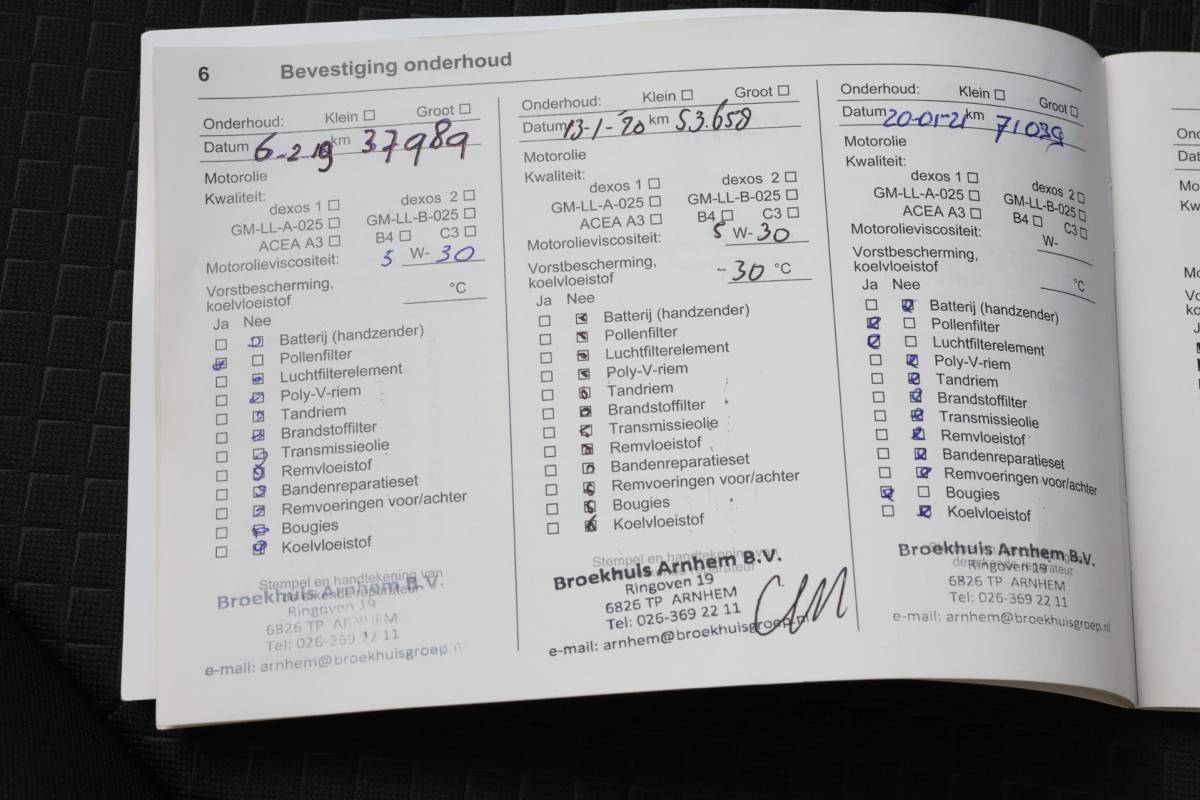 6 Bevestiging onderhoud
Onderhoud: Klein Groot
Datum 6-2-19 km 37989
Motorolie
Kwaliteit:
dexos 1 dexos 2
GM-LL-A-025 GM-LL-B-025
ACEA A3 B4 C3
Motorolieviscositeit: 5 W- 30
Vorstbescherming,
koelvloeistof °C
Ja Nee
Batterij (handzender)
Pollenfilter
Luchtfilterelement
Poly-V-riem
Tandriem
Brandstoffilter
Transmissieolie
Remvloeistof
Bandenreparatieset
Remvoeringen voor/achter
Bougies
Koelvloeistof
Stempel en handtekening van
Broekhuis Arnhem B.V.
Ringoven 19
6826 TP ARNHEM
Tel: 026-369 22 11
e-mail: arnhem@broekhuisgroep.nl
Onderhoud: Klein Groot
Datum 13-1-'20 km 53.658
Motorolie
Kwaliteit:
dexos 1 dexos 2
GM-LL-A-025 GM-LL-B-025
ACEA A3 B4 C3
Motorolieviscositeit: 5 W- 30
Vorstbescherming,
koelvloeistof -30 °C
Ja Nee
Batterij (handzender)
Pollenfilter
Luchtfilterelement
Poly-V-riem
Tandriem
Brandstoffilter
Transmissieolie
Remvloeistof
Bandenreparatieset
Remvoeringen voor/achter
Bougies
Koelvloeistof
Stempel en handtekening van
Broekhuis Arnhem B.V.
Ringoven 19
6826 TP ARNHEM
Tel: 026-369 22 11
e-mail: arnhem@broekhuisgroep.nl
Onderhoud: Klein Groot
Datum 20-01-21 km 71039
Motorolie
Kwaliteit:
dexos 1 dexos 2
GM-LL-A-025 GM-LL-B-025
ACEA A3 B4 C3
Motorolieviscositeit: W-
Vorstbescherming,
koelvloeistof °C
Ja Nee
Batterij (handzender)
Pollenfilter
Luchtfilterelement
Poly-V-riem
Tandriem
Brandstoffilter
Transmissieolie
Remvloeistof
Bandenreparatieset
Remvoeringen voor/achter
Bougies
Koelvloeistof
Broekhuis Arnhem B.V.
Ringoven 19
6826 TP ARNHEM
Tel: 026-369 22 11
e-mail: arnhem@broekhuisgroep.nl